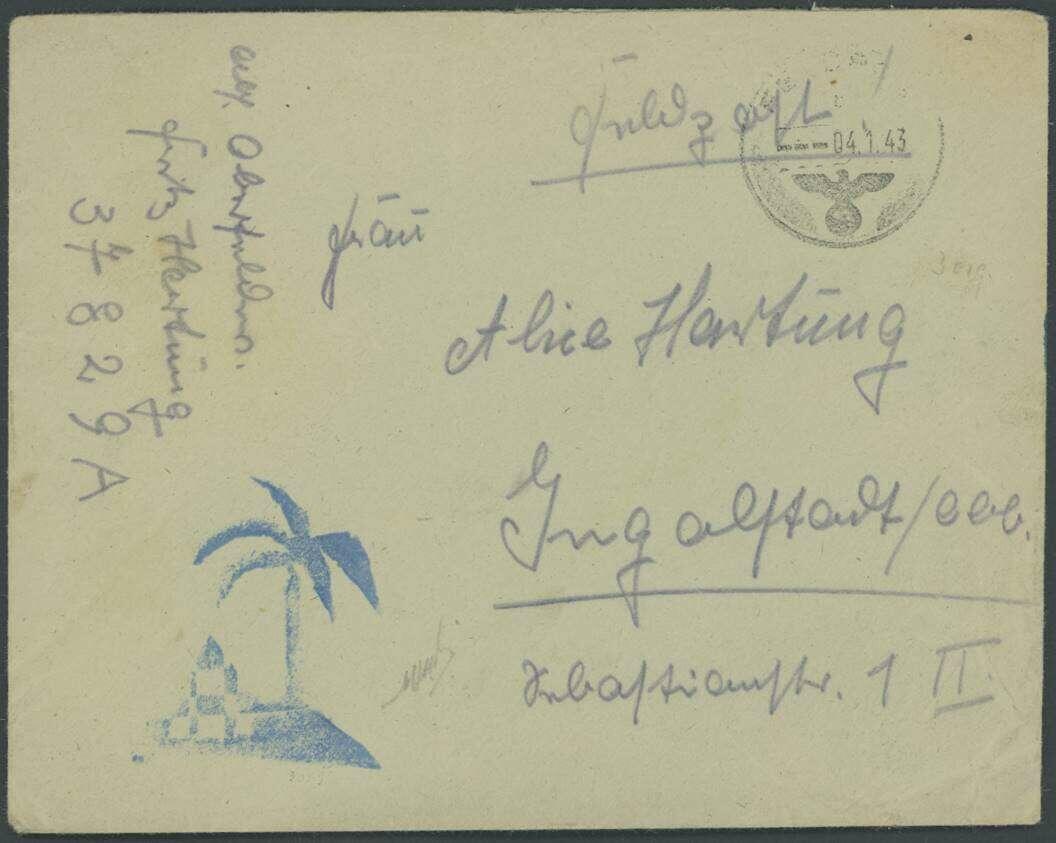 Feldpost
04.1.43
Frau
Alice Hartung
Ingolstadt/Obb.
Sebastianstr. 1 II
Abs. Oberfeldw.
Fritz Hartung
37829 A